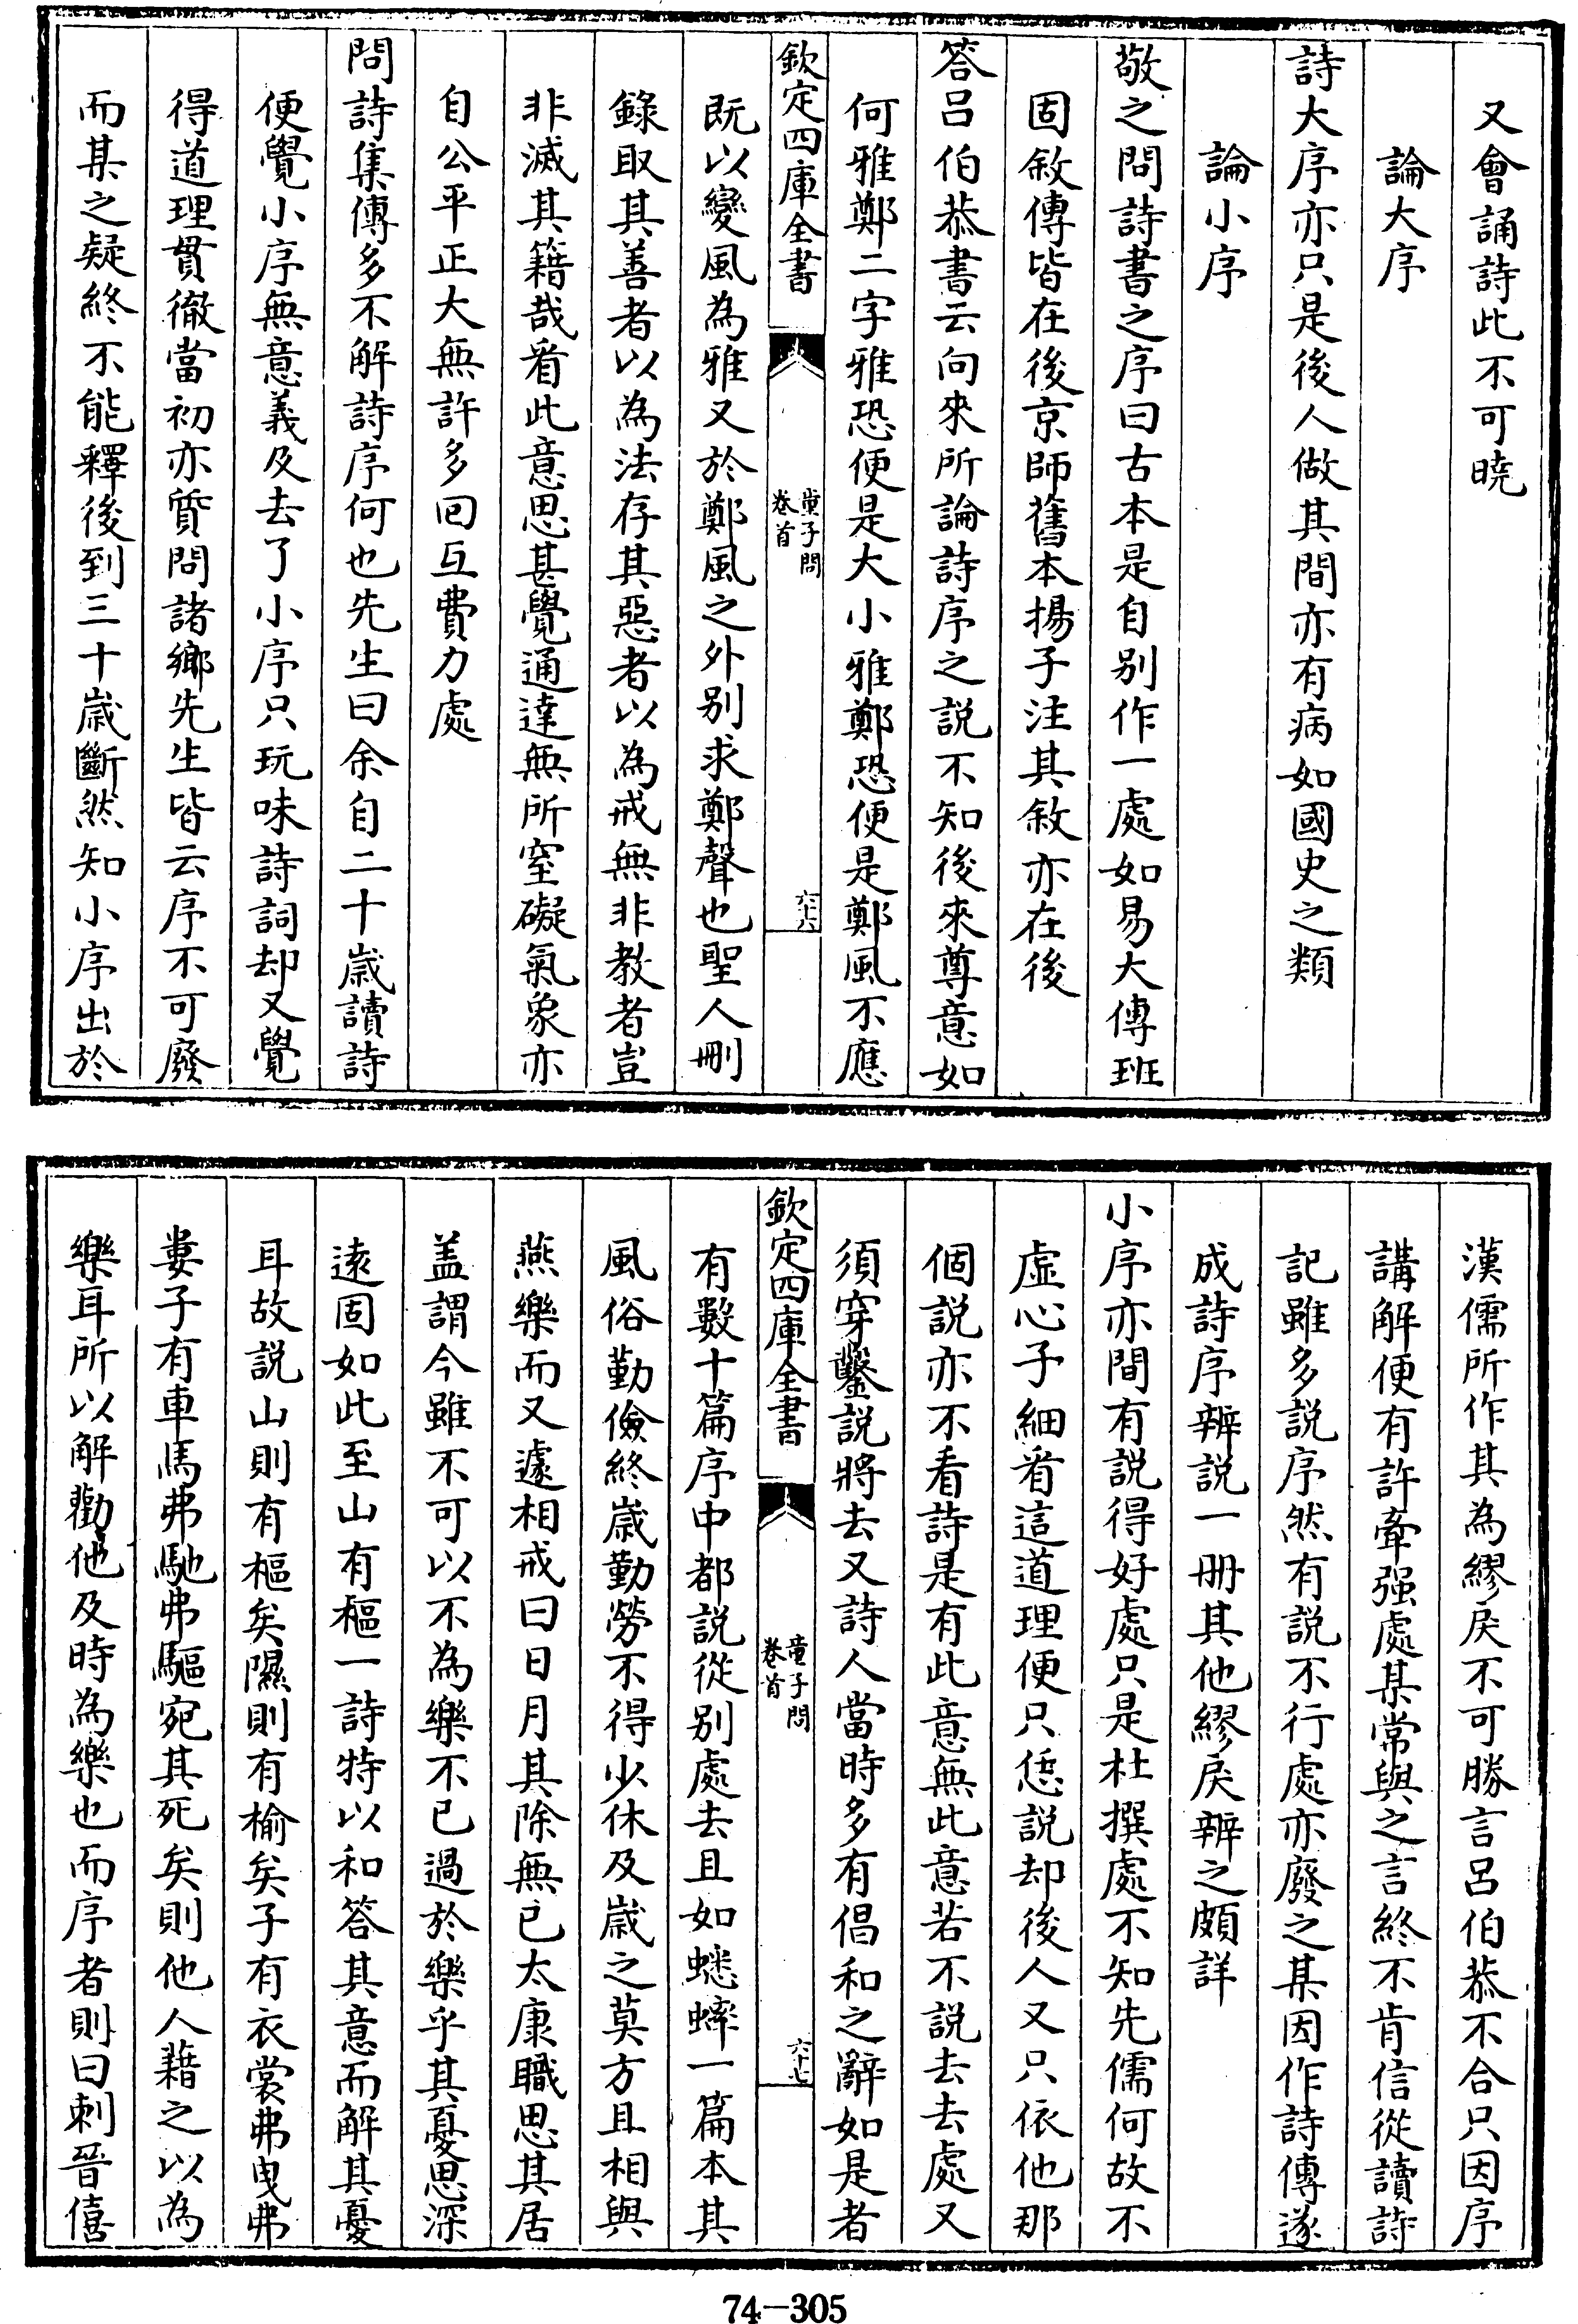 又會誦詩此不可曉
論大序
詩大序亦只是後人做其間亦有病如國史之類
論小序
敬之問詩書之序曰古本是自别作一處如易大傳班
固敘傳皆在後京師舊本揚子注其敘亦在後
答呂伯恭書云向來所論詩序之説不知後來尊意如
何雅鄭二字雅恐便是大小雅鄭恐便是鄭風不應
欽定四庫全書
童子問
卷首
六十六
既以變風為雅又於鄭風之外别求鄭聲也聖人刪
錄取其善者以為法存其惡者以為戒無非教者豈
非滅其籍哉看此意思甚覺通達無所窒礙氣象亦
自公平正大無許多回互費力處
問詩集傳多不解詩序何也先生曰余自二十歲讀詩
便覺小序無意義及去了小序只玩味詩詞却又覺
得道理貫徹當初亦質問諸鄉先生皆云序不可廢
而某之疑終不能釋後到三十歲斷然知小序出於
漢儒所作其為繆戾不可勝言呂伯恭不合只因序
講解便有許牽强處某常與之言終不肯信從讀詩
記雖多説序然有説不行處亦廢之某因作詩傳遂
成詩序辨説一冊其他繆戾辨之頗詳
小序亦間有説得好處只是杜撰處不知先儒何故不
虛心子細看這道理便只恁説却後人又只依他那
個説亦不看詩是有此意無此意若不説去去處又
須穿鑿説將去又詩人當時多有倡和之辭如是者
欽定四庫全書
童子問
卷首
六十七
有數十篇序中都説從别處去且如蟋蟀一篇本其
風俗勤儉終歲勤勞不得少休及歲之莫方且相與
燕樂而又遽相戒曰日月其除無已太康職思其居
盖謂今雖不可以不為樂不已過於樂乎其憂思深
遠固如此至山有樞一詩特以和答其意而解其憂
耳故説山則有樞矣隰則有榆矣子有衣裳弗曳弗
婁子有車馬弗馳弗驅宛其死矣則他人藉之以為
樂耳所以解勸他及時為樂也而序者則曰刺晉僖
74-305